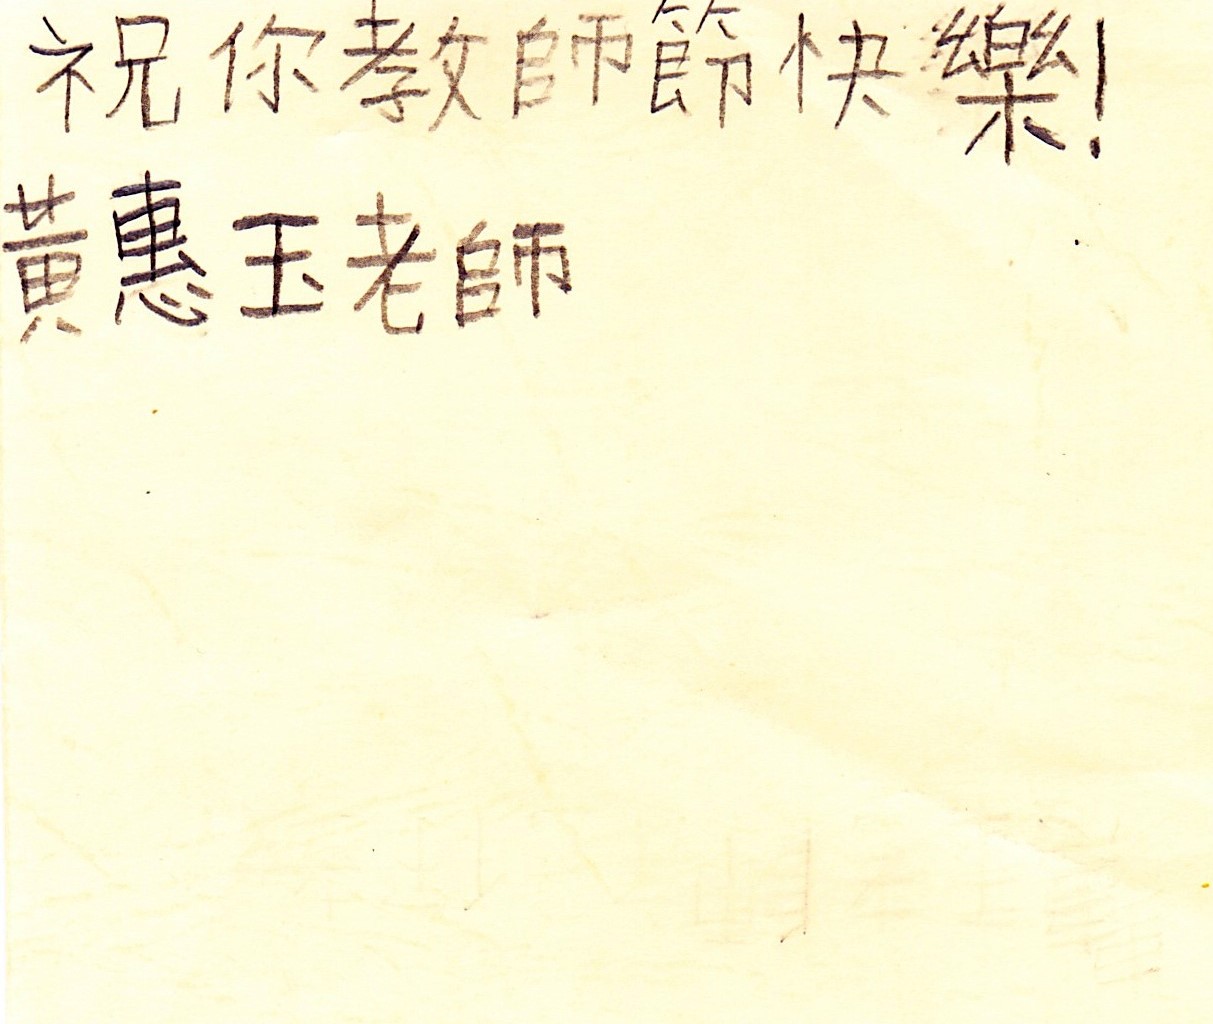 祝你教師節快樂!
黃惠玉老師